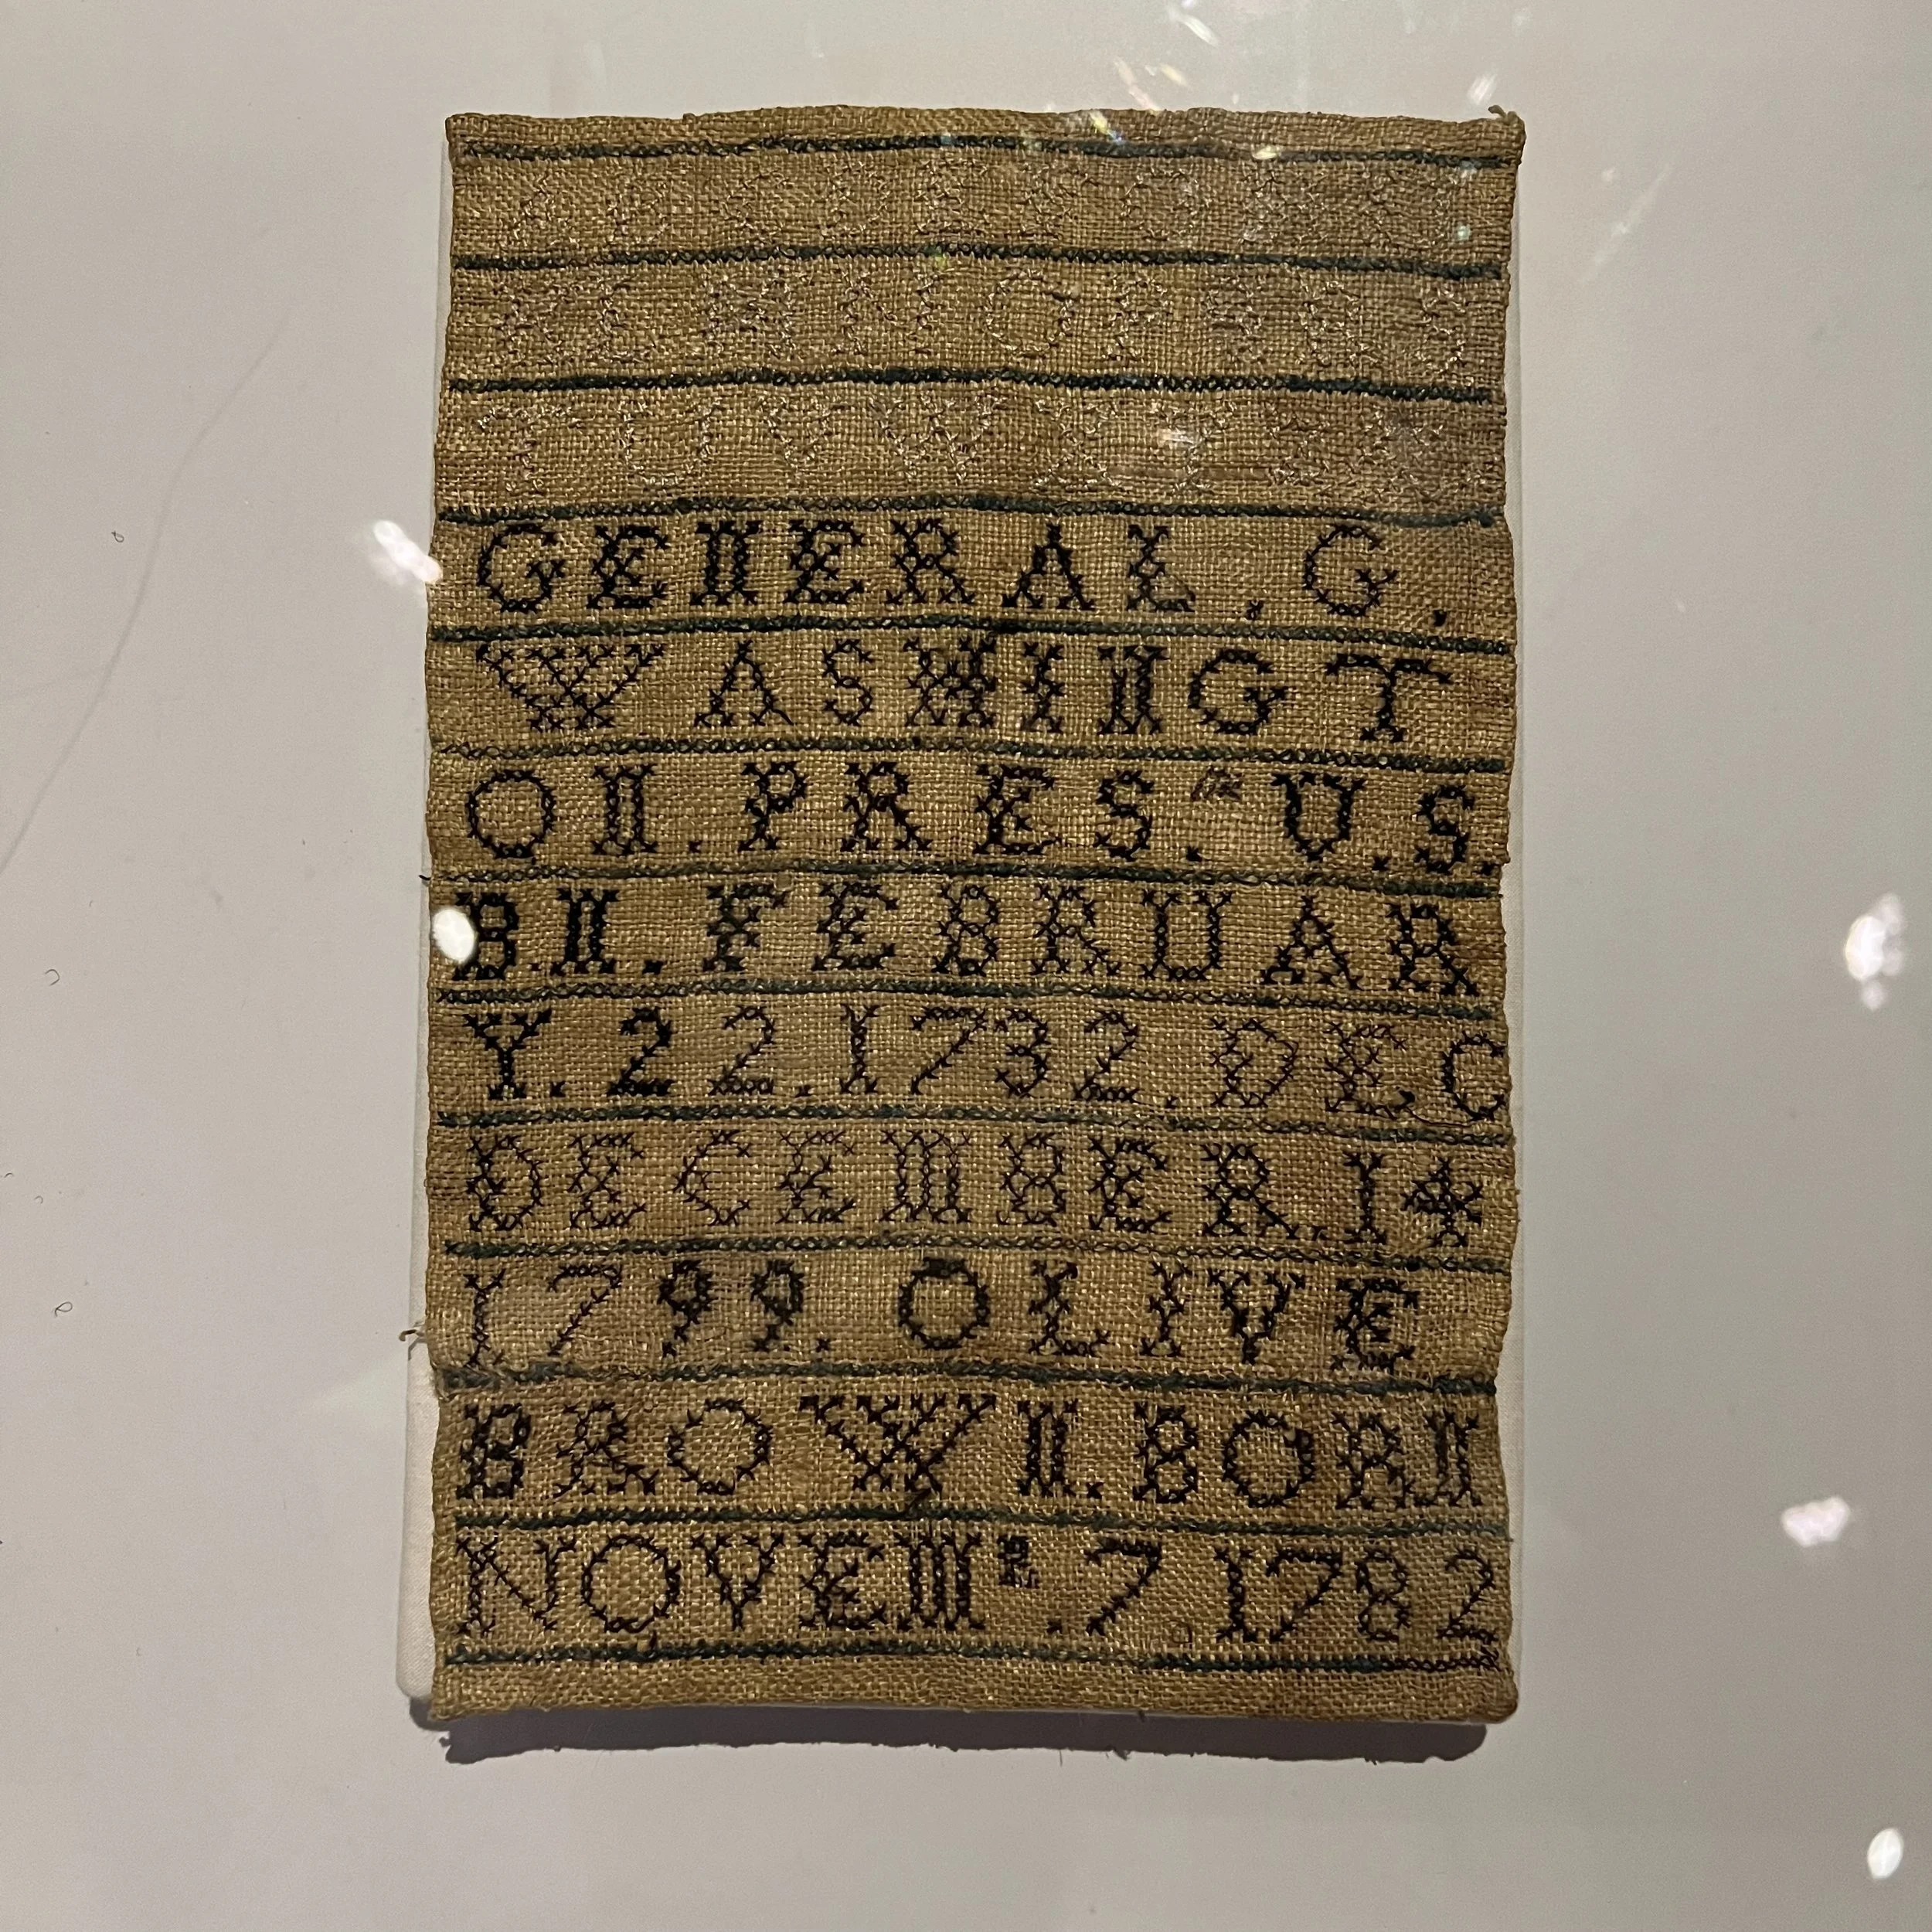 K L M N O P
T U V W X Y
GENERAL. G.
WASHINGT
ON. PRES. the U.S.
B.N. FEBRUAR
Y. 22. 1732. DEC
DECEMBER. 14
1799. OLIVE
BROWN. BORN
NOVEM^R. 7. 1782